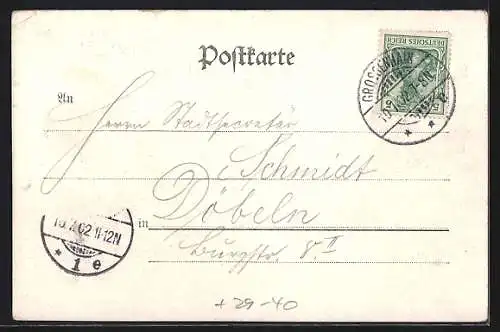 Postkarte
DEUTSCHES REICH
GROSSENHAIN
An
Herrn Stadtsecretär
Schmidt
in Döbeln
Burgstr. 8 II
02 11-12N
* 1 e
+ 29-40